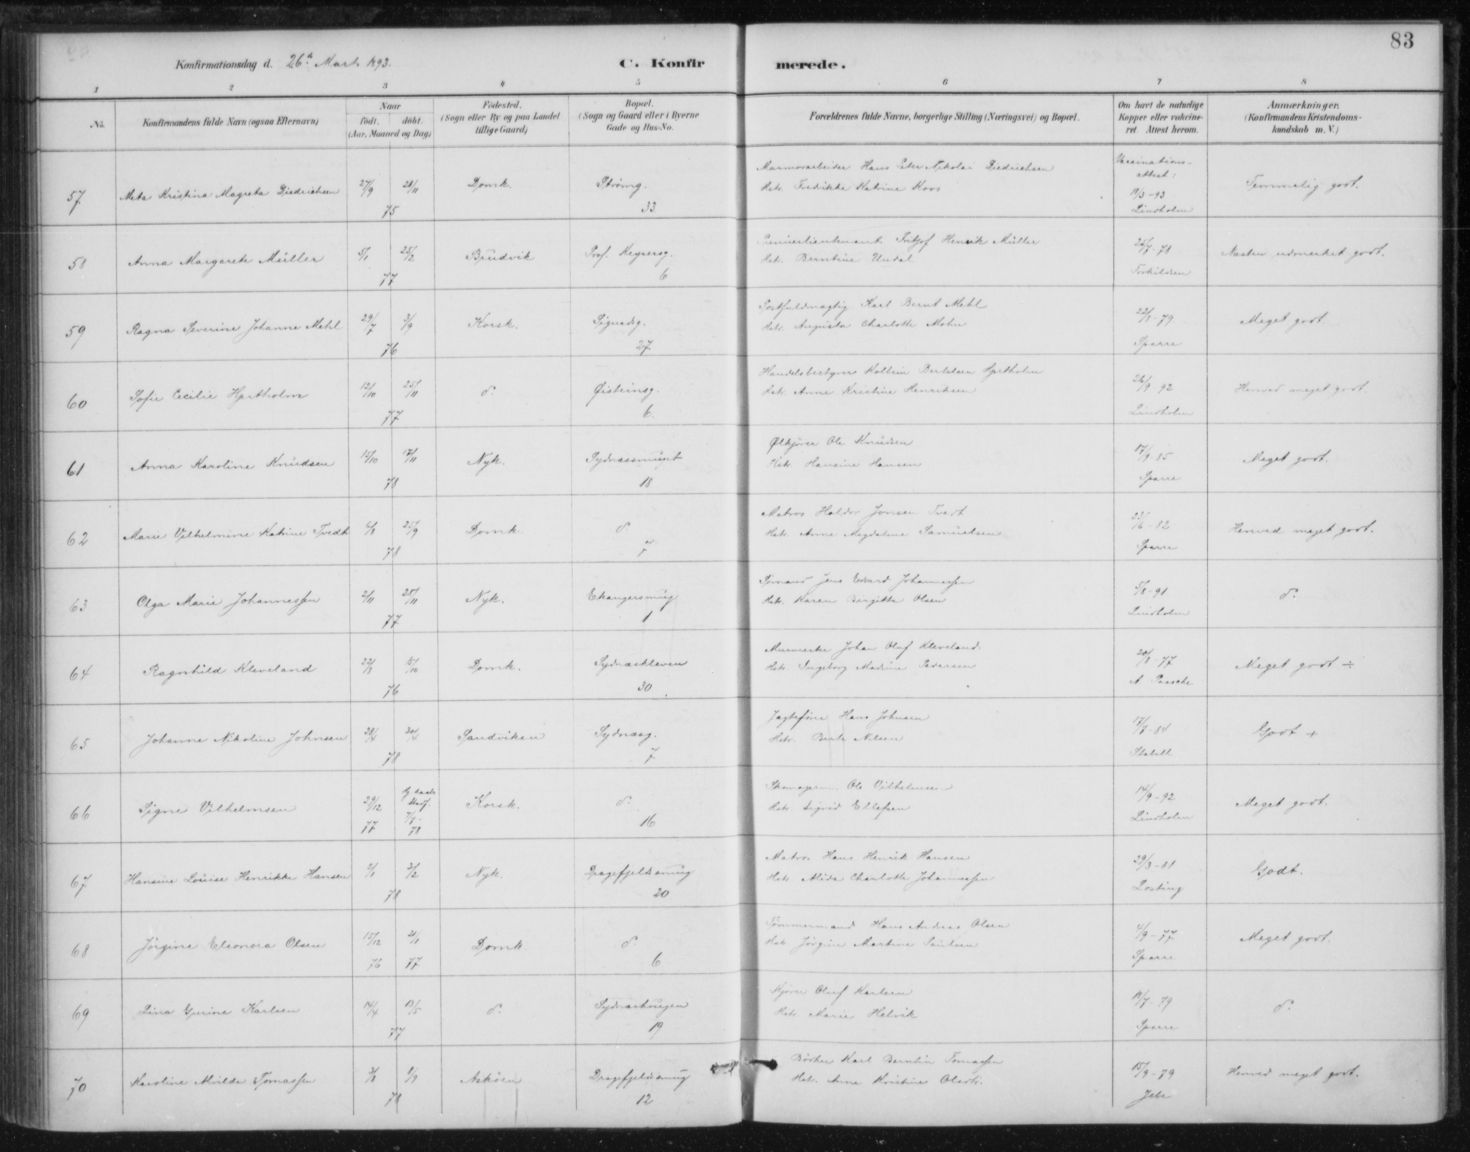 83
Konfirmationsdag d. 26de Marts 1893.
C. Konfirmerede.
1 2 3 4 5 6 7 8
No.
Konfirmandens fulde Navn (ogsaa Efternavn)
Naar
født. døbt.
(Aar, Maaned og Dag)
Fødested.
(Sogn eller By og paa Landet
tillige Gaard)
Bopæl.
(Sogn og Gaard eller i Byerne
Gade og Hus-No.
Forældrenes fulde Navne, borgerlige Stilling (Næringsvei) og Bopæl.
Om havt de naturlige
Kopper eller vaksine-
ret. Attest herom.
Anmærkninger.
(Konfirmandens Kristendoms-
kundskab m. V.)
57 Meta Kristina Magreta Diedrichsen 27/9 28/11 75 Domk. Strømg. 33
Marmorarbeider Hans Peter Nikolai Diedrichsen
Hst. Fredrikke Katrine Roos
Vaccinations-
attest:
/3-93
Lindholm
Temmelig godt.
58 Anna Margarete Müller 5/1 25/2 77 Bjudvik Prof. Keysersg. 6
Premierlieutenant Fritjof Henrik Müller
Hst. Berntine Undal
-78
Torkildsen
Næsten udmerket godt.
59 Ragna Severine Johanne Mehl 29/7 3/9 76 Korsk. Sigurdsg. 27
Postfuldmægtig Karl Bernt Mehl
Hst. Augusta Charlotte Mohn
-79
Sparre
Meget godt
60 Sofie Cecilie Hjertholm 12/10 25/11 77 do. Øisteinsg. 6.
Handelsbestyrer Kolbein Hjertholm
Hst. Anne Kristine Henriksen
/9 92
Lindholm
Henved meget godt.
61 Anna Karoline Knudsen 12/10 17/11 78 Nyk. Sydnessmuget 18
Ole Knudsen
Hst. Hansine Hansen
17/9-85
Sparre
Meget godt.
62 Marie Vilhelmine Katrine Tvedt 25/9 78 Domk. do. 7
Matros Haldor Jonsen Tvedt
Hst. Anne Magdalene Samuelsen
/6-82
Sparre
Henved meget godt.
63 Olga Marie Johannessen 2/11 25/11 77 Nyk. Ekangersmug 1
Sømand Jens Edvard Johannessen
Hst. Karen Bergitte Olsen
/8-91
Lindholm
do.
64 Ragnhild Kleveland 22/8 /10 76 Domk. Sydneskleven 30
Murmester Johan Oluf Kleveland.
Hst. Ingeborg Madine Pedersen
20/8-77
A. Paasche
Meget godt ÷
65 Johanne Nikoline Johnsen 28/4 78 Sandviken Sydnesg. 7
Jagtefører Hans Johnsen
Hst. Berte Nilsen
-84
Godt +
66 Signe Vilhelmsen 29/12 77 78 Korsk. do. 16
Ole Vilhelmsen
Hst. Sigrid Ellefsen
14/9-92
Lindholm
Meget godt.
67 Hansine Louise Henrikke Hansen 2/1 3/2 78 Nyk. Dragefjeldsmug 20
Matros Hans Henrik Hansen
Hst. Alida Charlotte Johannessen
29/3-81
Losting
Godt.
68 Jørgine Eleonora Olsen 15/12 76 21/1 77 Domk. do. 6
Tømmermand Hans Andreas Olsen
Hst. Jørgine Martine Paulsen
4/9-77
Sparre
Meget godt.
69 Lina Gurine Karlsen 14/4 13/5 77 do. Sydneshougen 19
Kjører Oluf Karlsen
Hst. Marie Helvik
/7-79
Sparre
do.
70 Karoline Alvilde Tomassen 9/9 78 Askøen Dragefjeldsmug 12
Bødker Karl Berntin Tomassen
Hst. Anne Kristine Olsdt.
15/9-79
Henved meget godt.